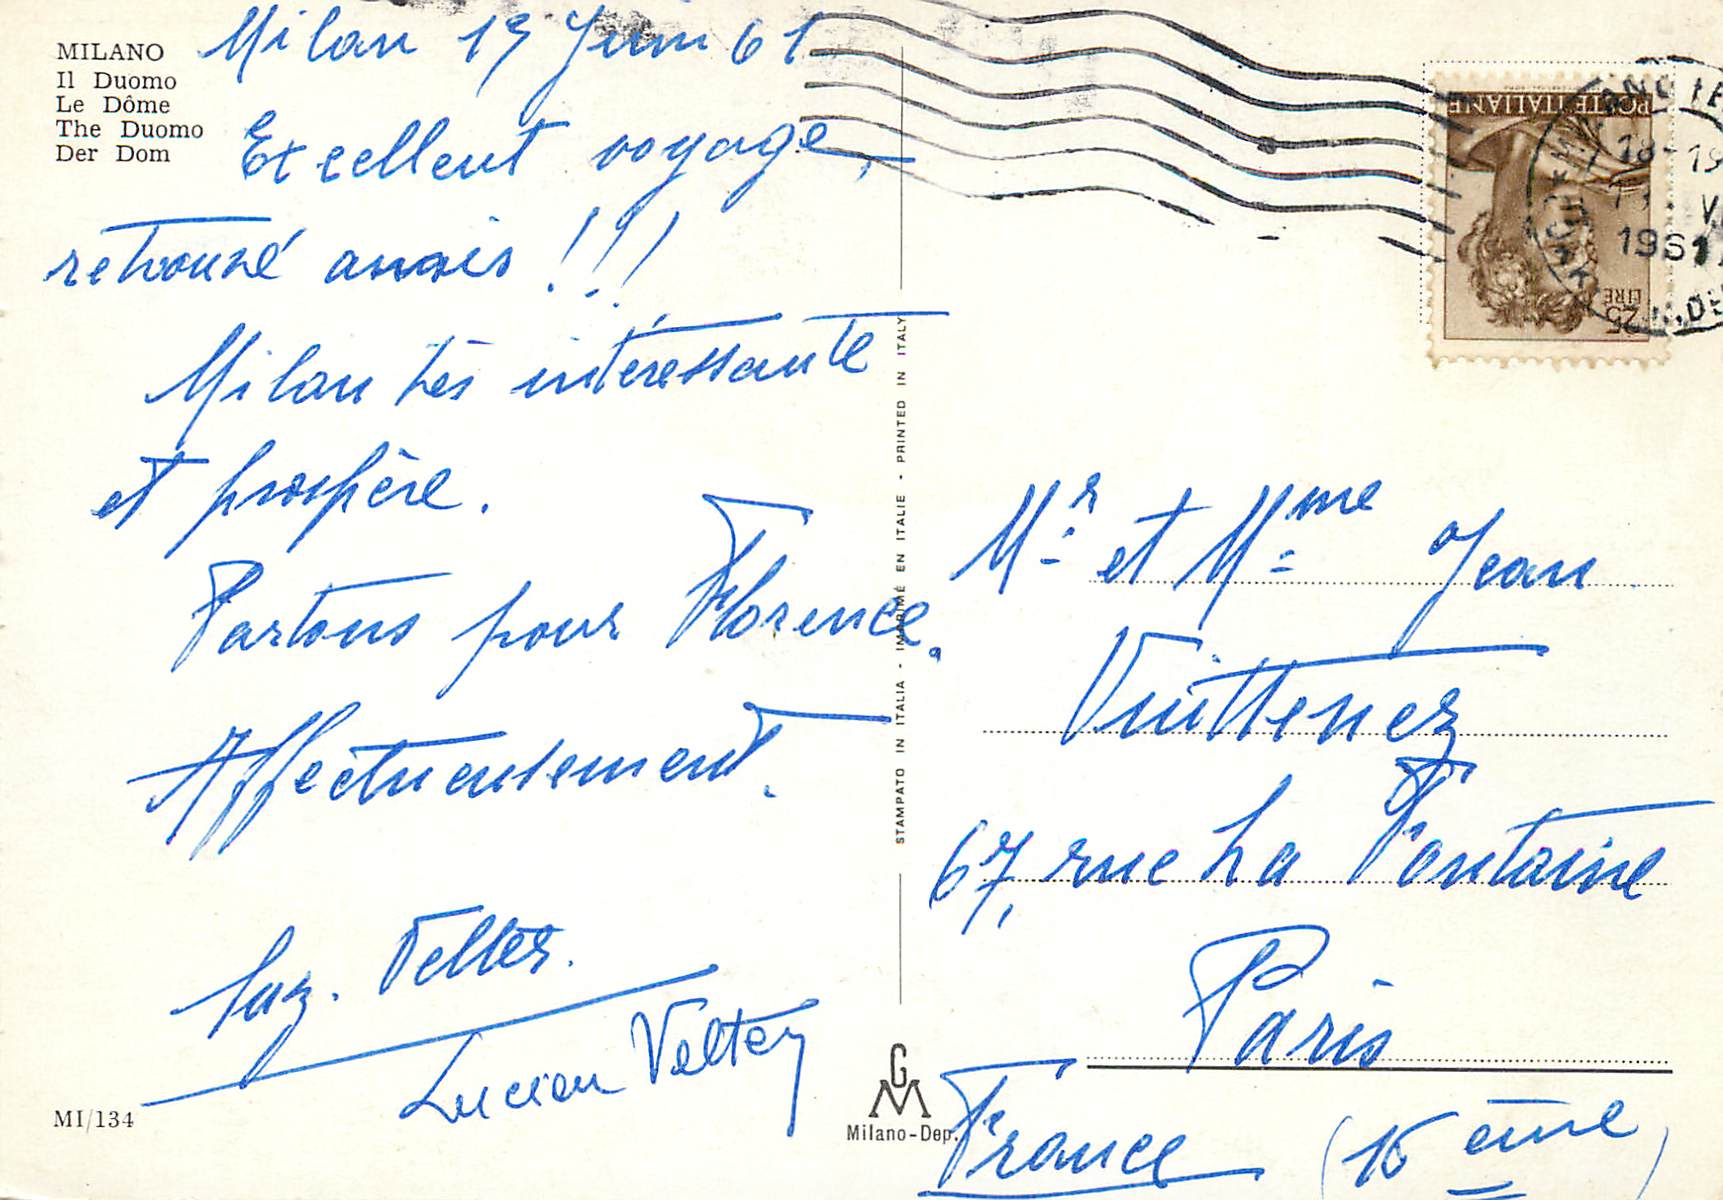 MILANO
Il Duomo
Le Dôme
The Duomo
Der Dom
Milan 19 Juin 61
Excellent voyage,
retrouvé amis !!!
Milan très intéressante
et prospère.
Partons pour Florence.
Affectueusement.
Velter.
Lucien Velter
MI/134
STAMPATO IN ITALIA - IMPRIMÉ EN ITALIE - PRINTED IN ITALY
GM
Milano-Dep.
POSTE ITALIANE
25 LIRE
18-19
1961
Mr et Mme Jean
Vuittenez
67, rue La Fontaine
Paris
France (16ème)